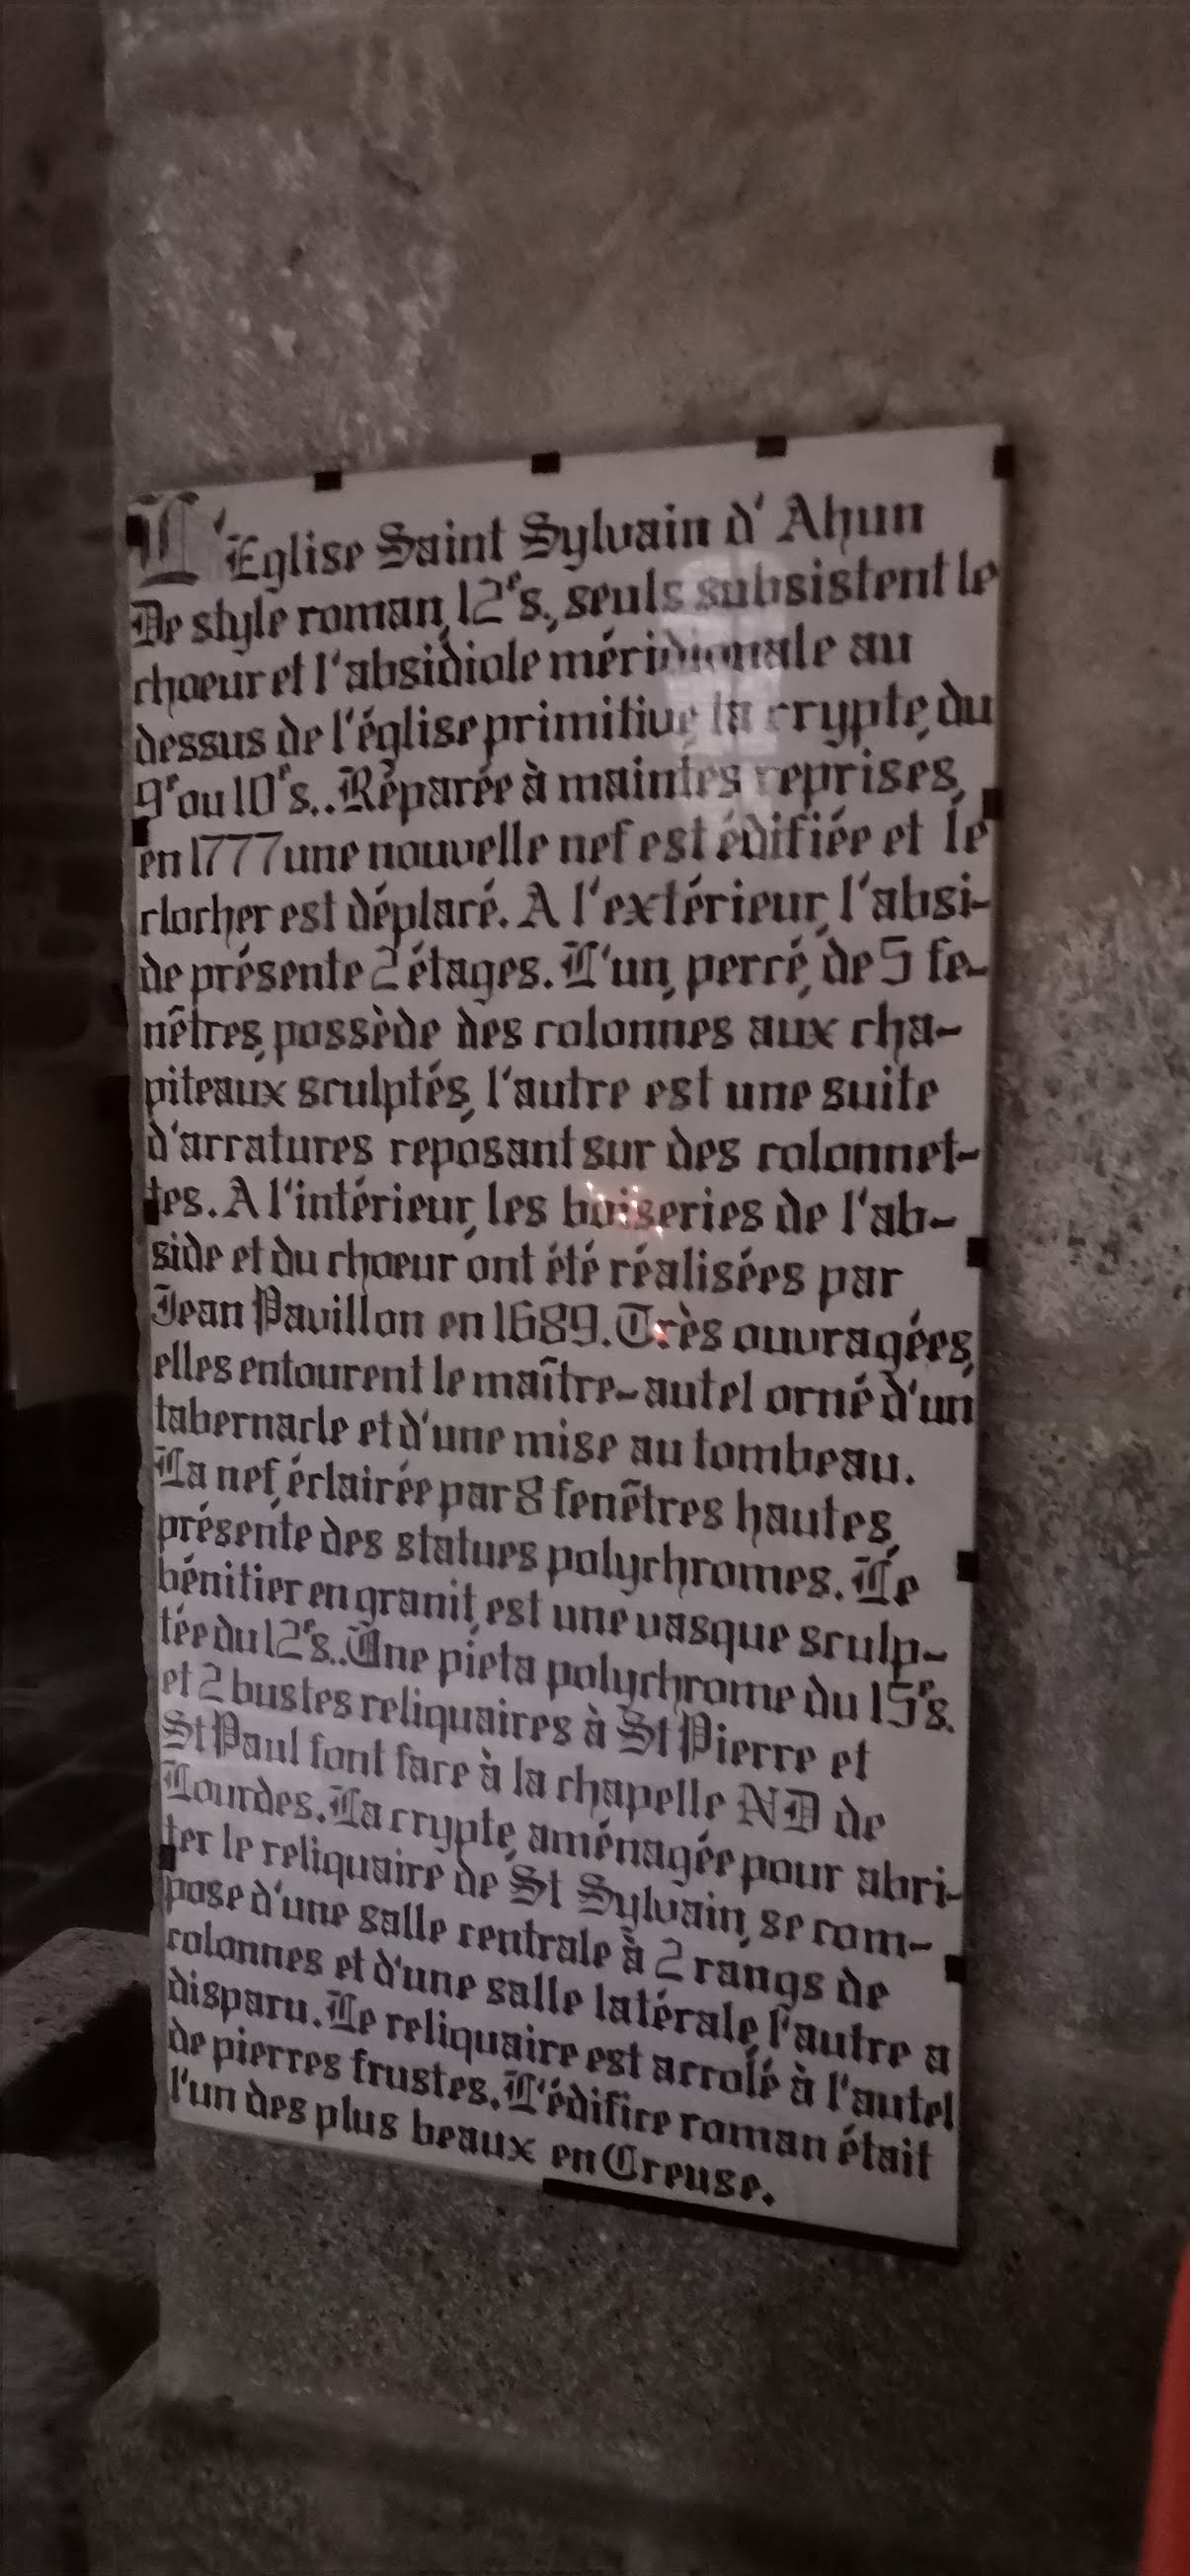 L'Eglise Saint Sylvain d'Ahun
De style roman, 12e s., seuls subsistent le
choeur et l'absidiole méridionale au
dessus de l'église primitive, la crypte, du
9e ou 10e s.. Réparée à maintes reprises,
en 1777 une nouvelle nef est édifiée et le
clocher est déplacé. A l'extérieur, l'absi-
de présente 2 étages. L'un, percé, de 5 fe-
nêtres, possède des colonnes aux cha-
piteaux sculptés, l'autre est une suite
d'arcatures reposant sur des colonnet-
tes. A l'intérieur, les boiseries de l'ab-
side et du choeur ont été réalisées par
Jean Pavillon en 1689. Très ouvragées,
elles entourent le maître-autel orné d'un
tabernacle et d'une mise au tombeau.
La nef, éclairée par 8 fenêtres hautes,
présente des statues polychromes. Le
bénitier en granit, est une vasque sculp-
tée du 12e s.. Une pieta polychrome du 15e s.
et 2 bustes reliquaires à St Pierre et
St Paul font face à la chapelle ND de
Lourdes. La crypte, aménagée pour abri-
ter le reliquaire de St Sylvain, se com-
pose d'une salle centrale à 2 rangs de
colonnes et d'une salle latérale, l'autre a
disparu. Le reliquaire est accolé à l'autel
de pierres frustes. L'édifice roman était
l'un des plus beaux en Creuse.